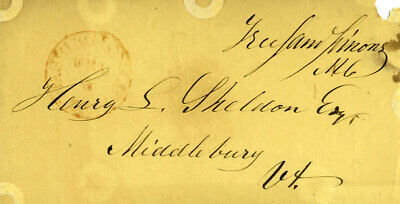 Free Sam Simons
M C
Henry L. Sheldon Esqr
Middlebury
Vt.